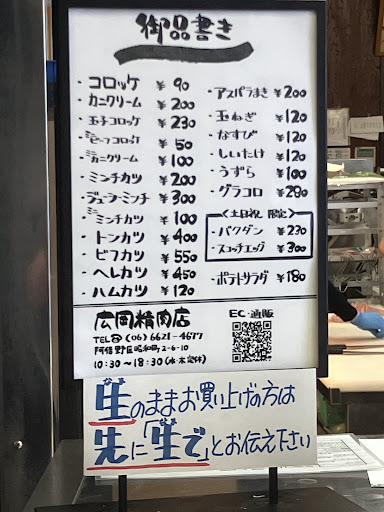 御品書き
・コロッケ ¥90
・カニクリーム ¥200
・玉子コロッケ ¥230
・ミニビーフコロッケ ¥50
・ミニカニクリーム ¥100
・ミンチカツ ¥200
・ジューシーミンチ ¥300
・ミニミンチカツ ¥100
・トンカツ ¥400
・ビフカツ ¥550
・ヘレカツ ¥450
・ハムカツ ¥120
・アスパラまき ¥200
・玉ねぎ ¥120
・なすび ¥120
・しいたけ ¥120
・うずら ¥100
・グラコロ ¥280
〈土日祝 限定〉
・バクダン ¥230
・スコッチエッグ ¥300
・ポテトサラダ ¥180
広岡精肉店
TEL☎(06)6621-4677
阿倍野区昭和町2-6-10
10:30~18:30(水・木定休)
EC・通販
生のままお買い上げの方は
なま
先に「生で」とお伝え下さい
なま